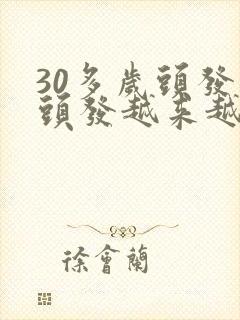 30多歲頭發
頭發越來越
徐會蘭